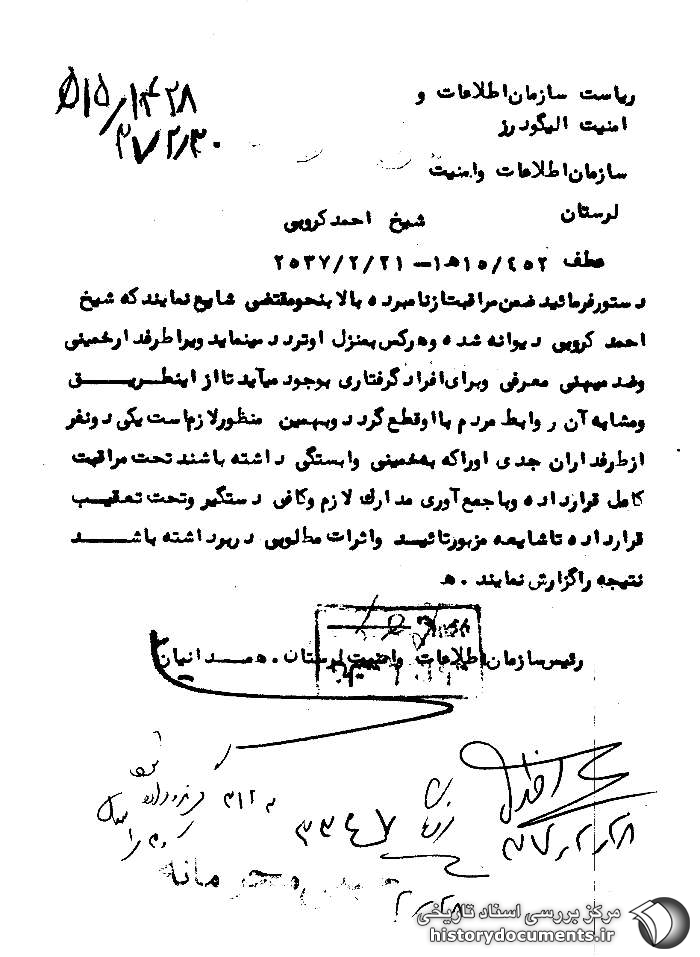 ۵۱۵/۱۴۲۸
۳۷/۲/۳۰
ریاست سازمان اطلاعات و
امنیت الیگودرز
سازمان اطلاعات وامنیت
لرستان
شیخ احمد کروبی
عطف ۱۵/۴۵۲ه۱ – ۲۵۳۷/۲/۲۱
دستور فرمائید ضمن مراقبت از نامبرده بالا بنحو مقتضی شایع نمایند که شیخ
احمد کروبی دیوانه شده و هرکس بمنزل او تردد مینماید ویرا طرفدار خمینی
وضد میهنی معرفی وبرای افراد گرفتاری بوجود میآید تا از اینطریق
ومشابه آن روابط مردم با او قطع گردد وبهمین منظور لازم است یکی دونفر
از طرفداران جدی او را که به خمینی وابستگی داشته باشند تحت مراقبت
کامل قرار داده وبا جمع آوری مدارك لازم وکافی دستگیر وتحت تعقیب
قرار داده تا شایعه مزبور تائید واثرات مطلوبی در بر داشته باشد
نتیجه را گزارش نمایند . ه
رئیس سازمان اطلاعات وامنیت لرستان . همدانیان
۳۱۲
۳۳۴۷
۳۷/۲/۲۸
۲/۲۸
مرکز بررسی اسناد تاریخی
historydocuments.ir